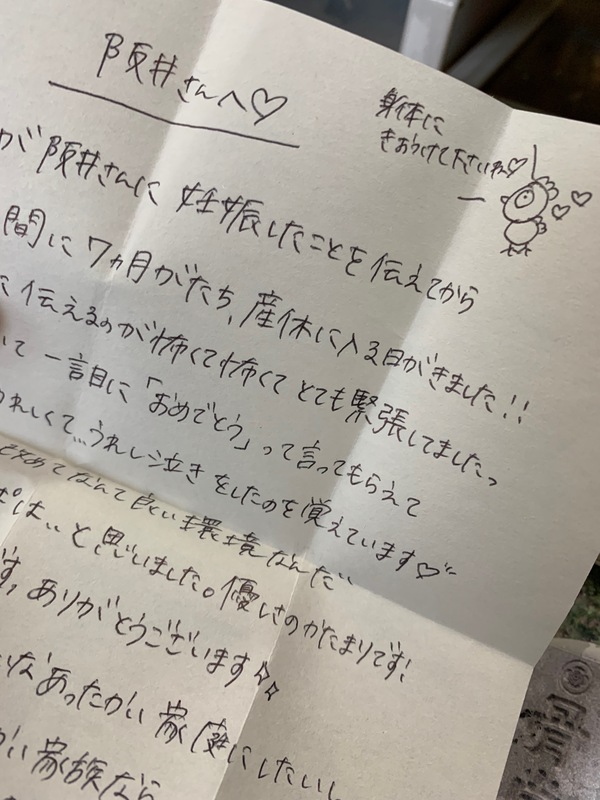 阪井さんへ♡
身体に
きおつけて下さいね♡
が阪井さんに妊娠したことを伝えてから
間に7ヵ月がたち、産休に入る日がきました!!
に伝えるのが怖くて怖くてとても緊張してましたっ
て一言目に「おめでとう」って言ってもらえて
うれしくて…うれし泣きをしたのを覚えています♡
なんて良い環境なんだ
は、、と思いました。優しさのかたまりです!
す。ありがとうございます
なあったかい家庭にしたいし
かい家族なら